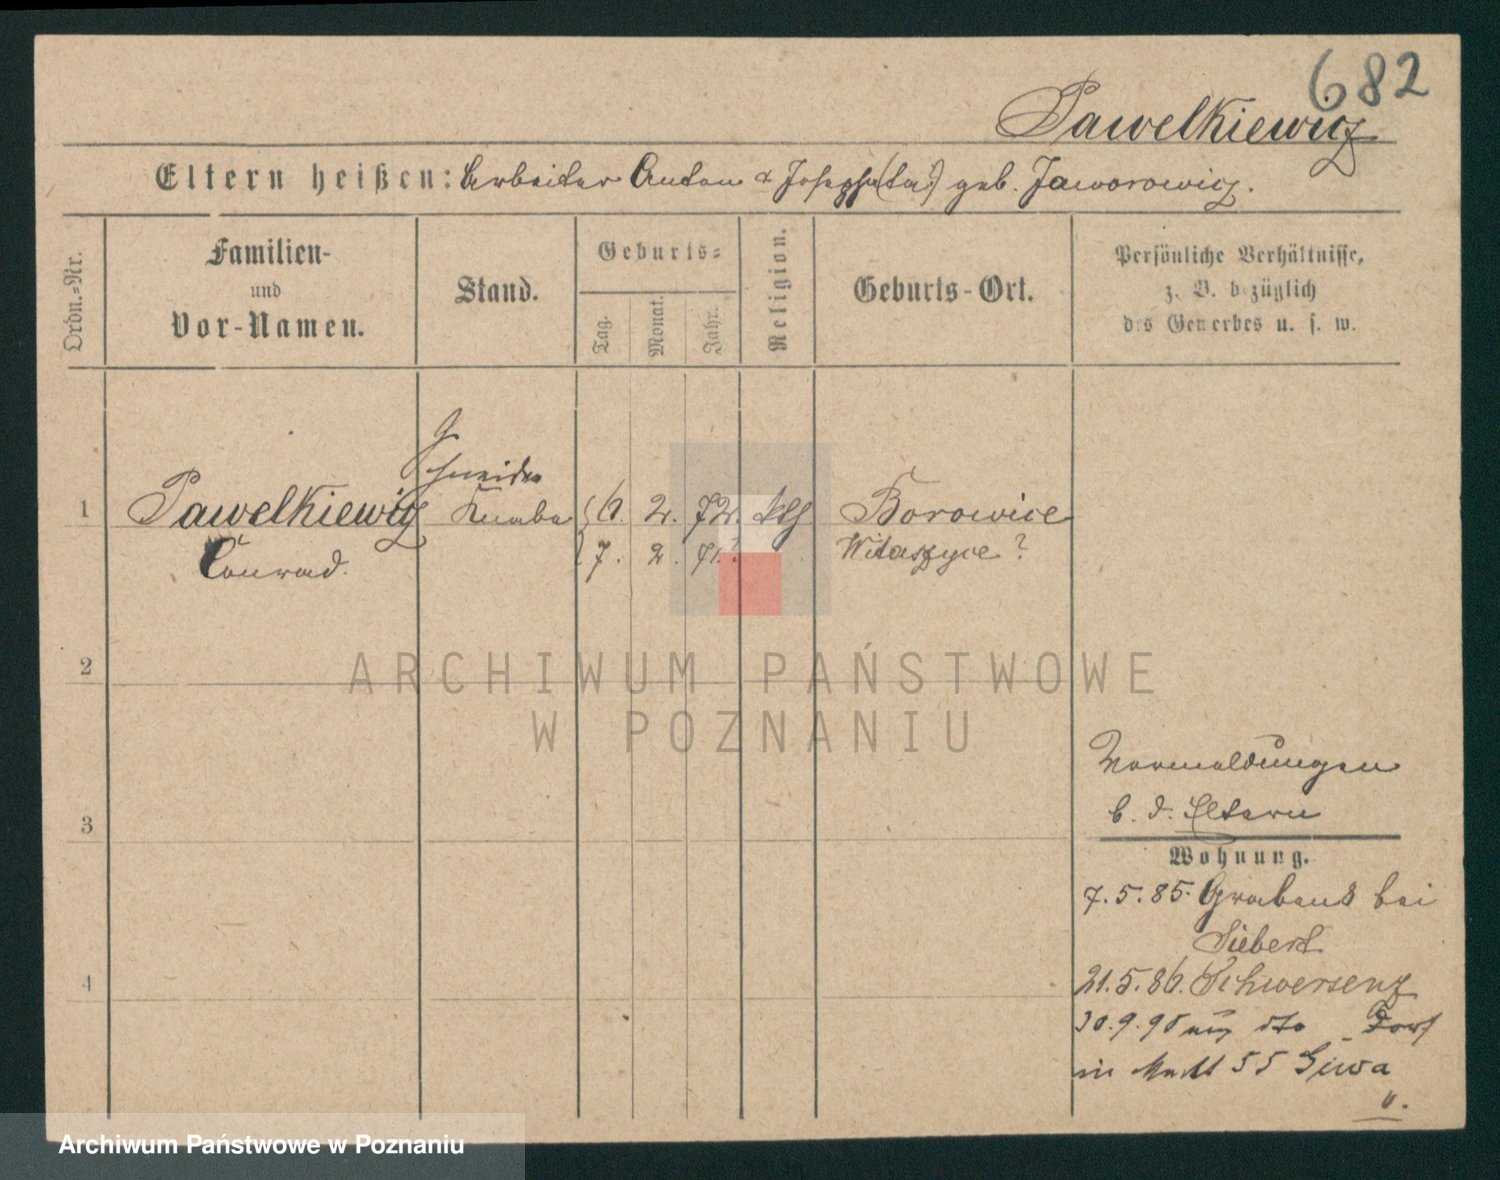 682
Pawelkiewicz
Eltern heißen: Arbeiter Anton & Josepha(ta?) geb. Jaworowicz.
Ordn.-Nr.
Familien-
und
Vor-Namen.
Stand.
Geburts-
Tag.
Monat.
Jahr.
Religion.
Geburts-Ort.
Persönliche Verhältnisse,
z. B. bezüglich
des Gewerbes u. s. w.
Schneider
1 Pawelkiewicz Knabe 6. 2. 72. kth Borowice
Conrad. 7. 2. 71.? Witaszyce ?
2
ARCHIWUM PAŃSTWOWE
W POZNANIU
Vormeldungen
b. d. Eltern
3
Wohnung.
7. 5. 85. Graben 8 bei
Siebert
4
21. 5. 86. Schwersenz
30. 9. 90 dto Dorf
in 55
Archiwum Państwowe w Poznaniu